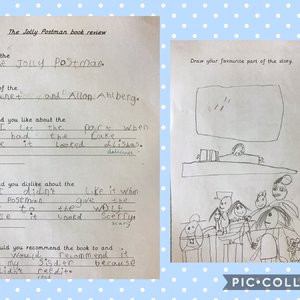 The Jolly Postman book review
the
e JOLLY Postman
of the
net and Allan Ahlberg.
d you like about the
I like the part when
had the cake
se it looked dlishas.
delicious
d you dislike about the
I didn't like it when
Postman give the
to the Wolf
se it looked Scerly.
scary
uld you recommend the book to and
would recommend it
my Sisder because
didnt redit.
Draw your favourite part of the story.
PIC•COLL